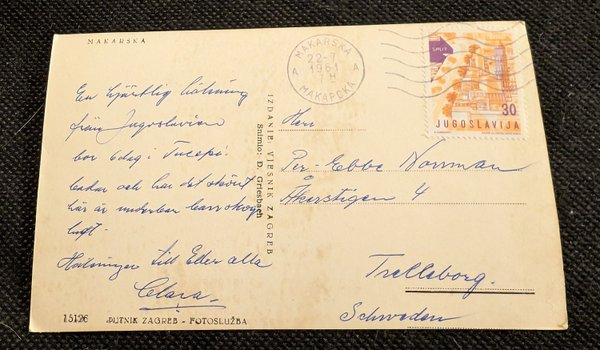 MAKARSKA
En hjärtlig hälsning
från Jugoslavien
bor 6 dag i Tucepi
badar och har det skönt
här är underbar barrskog
luft.
Hälsningar till Eder alla
Clara.
15126 PUTNIK ZAGREB - FOTOSLUŽBA
IZDANJE VJESNIK ZAGREB
Snimio: D. Griesbach
MAKARSKA
A A
22-7
1961
МАКАРСКА
SPLIT
30
JUGOSLAVIJA
Herr
Per-Ebbe Norrman
Åkerstigen 4
Trelleborg.
Schweden